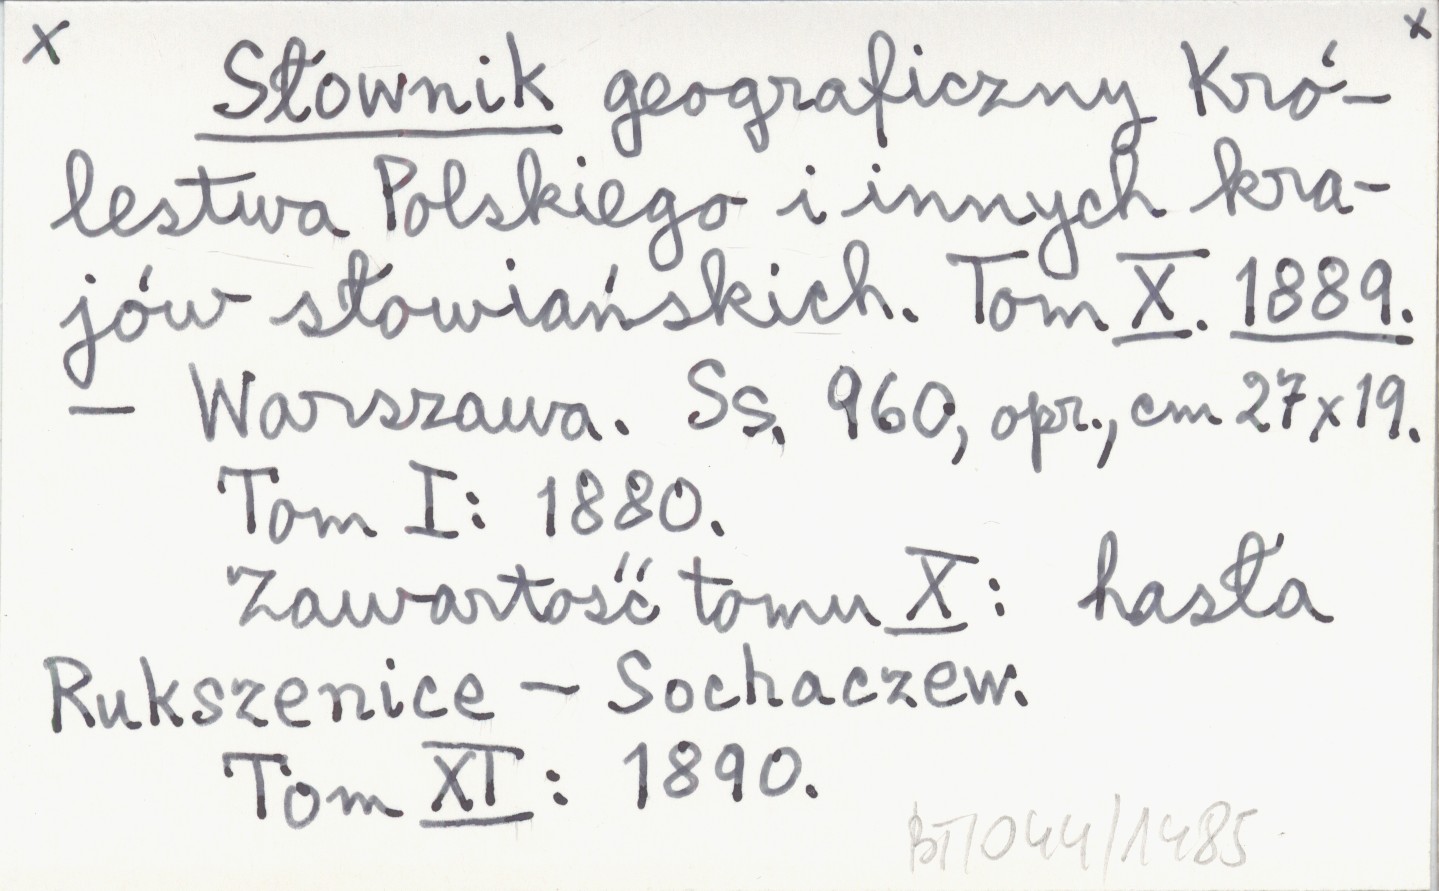 x x
Słownik geograficzny Kró-
lestwa Polskiego i innych kra-
jów słowiańskich. Tom X. 1889.
— Warszawa. Ss. 960, opr., cm 27x19.
Tom I: 1880.
Zawartość tomu X: hasła
Rukszenice – Sochaczew.
Tom XI: 1890.
BT/044/1485